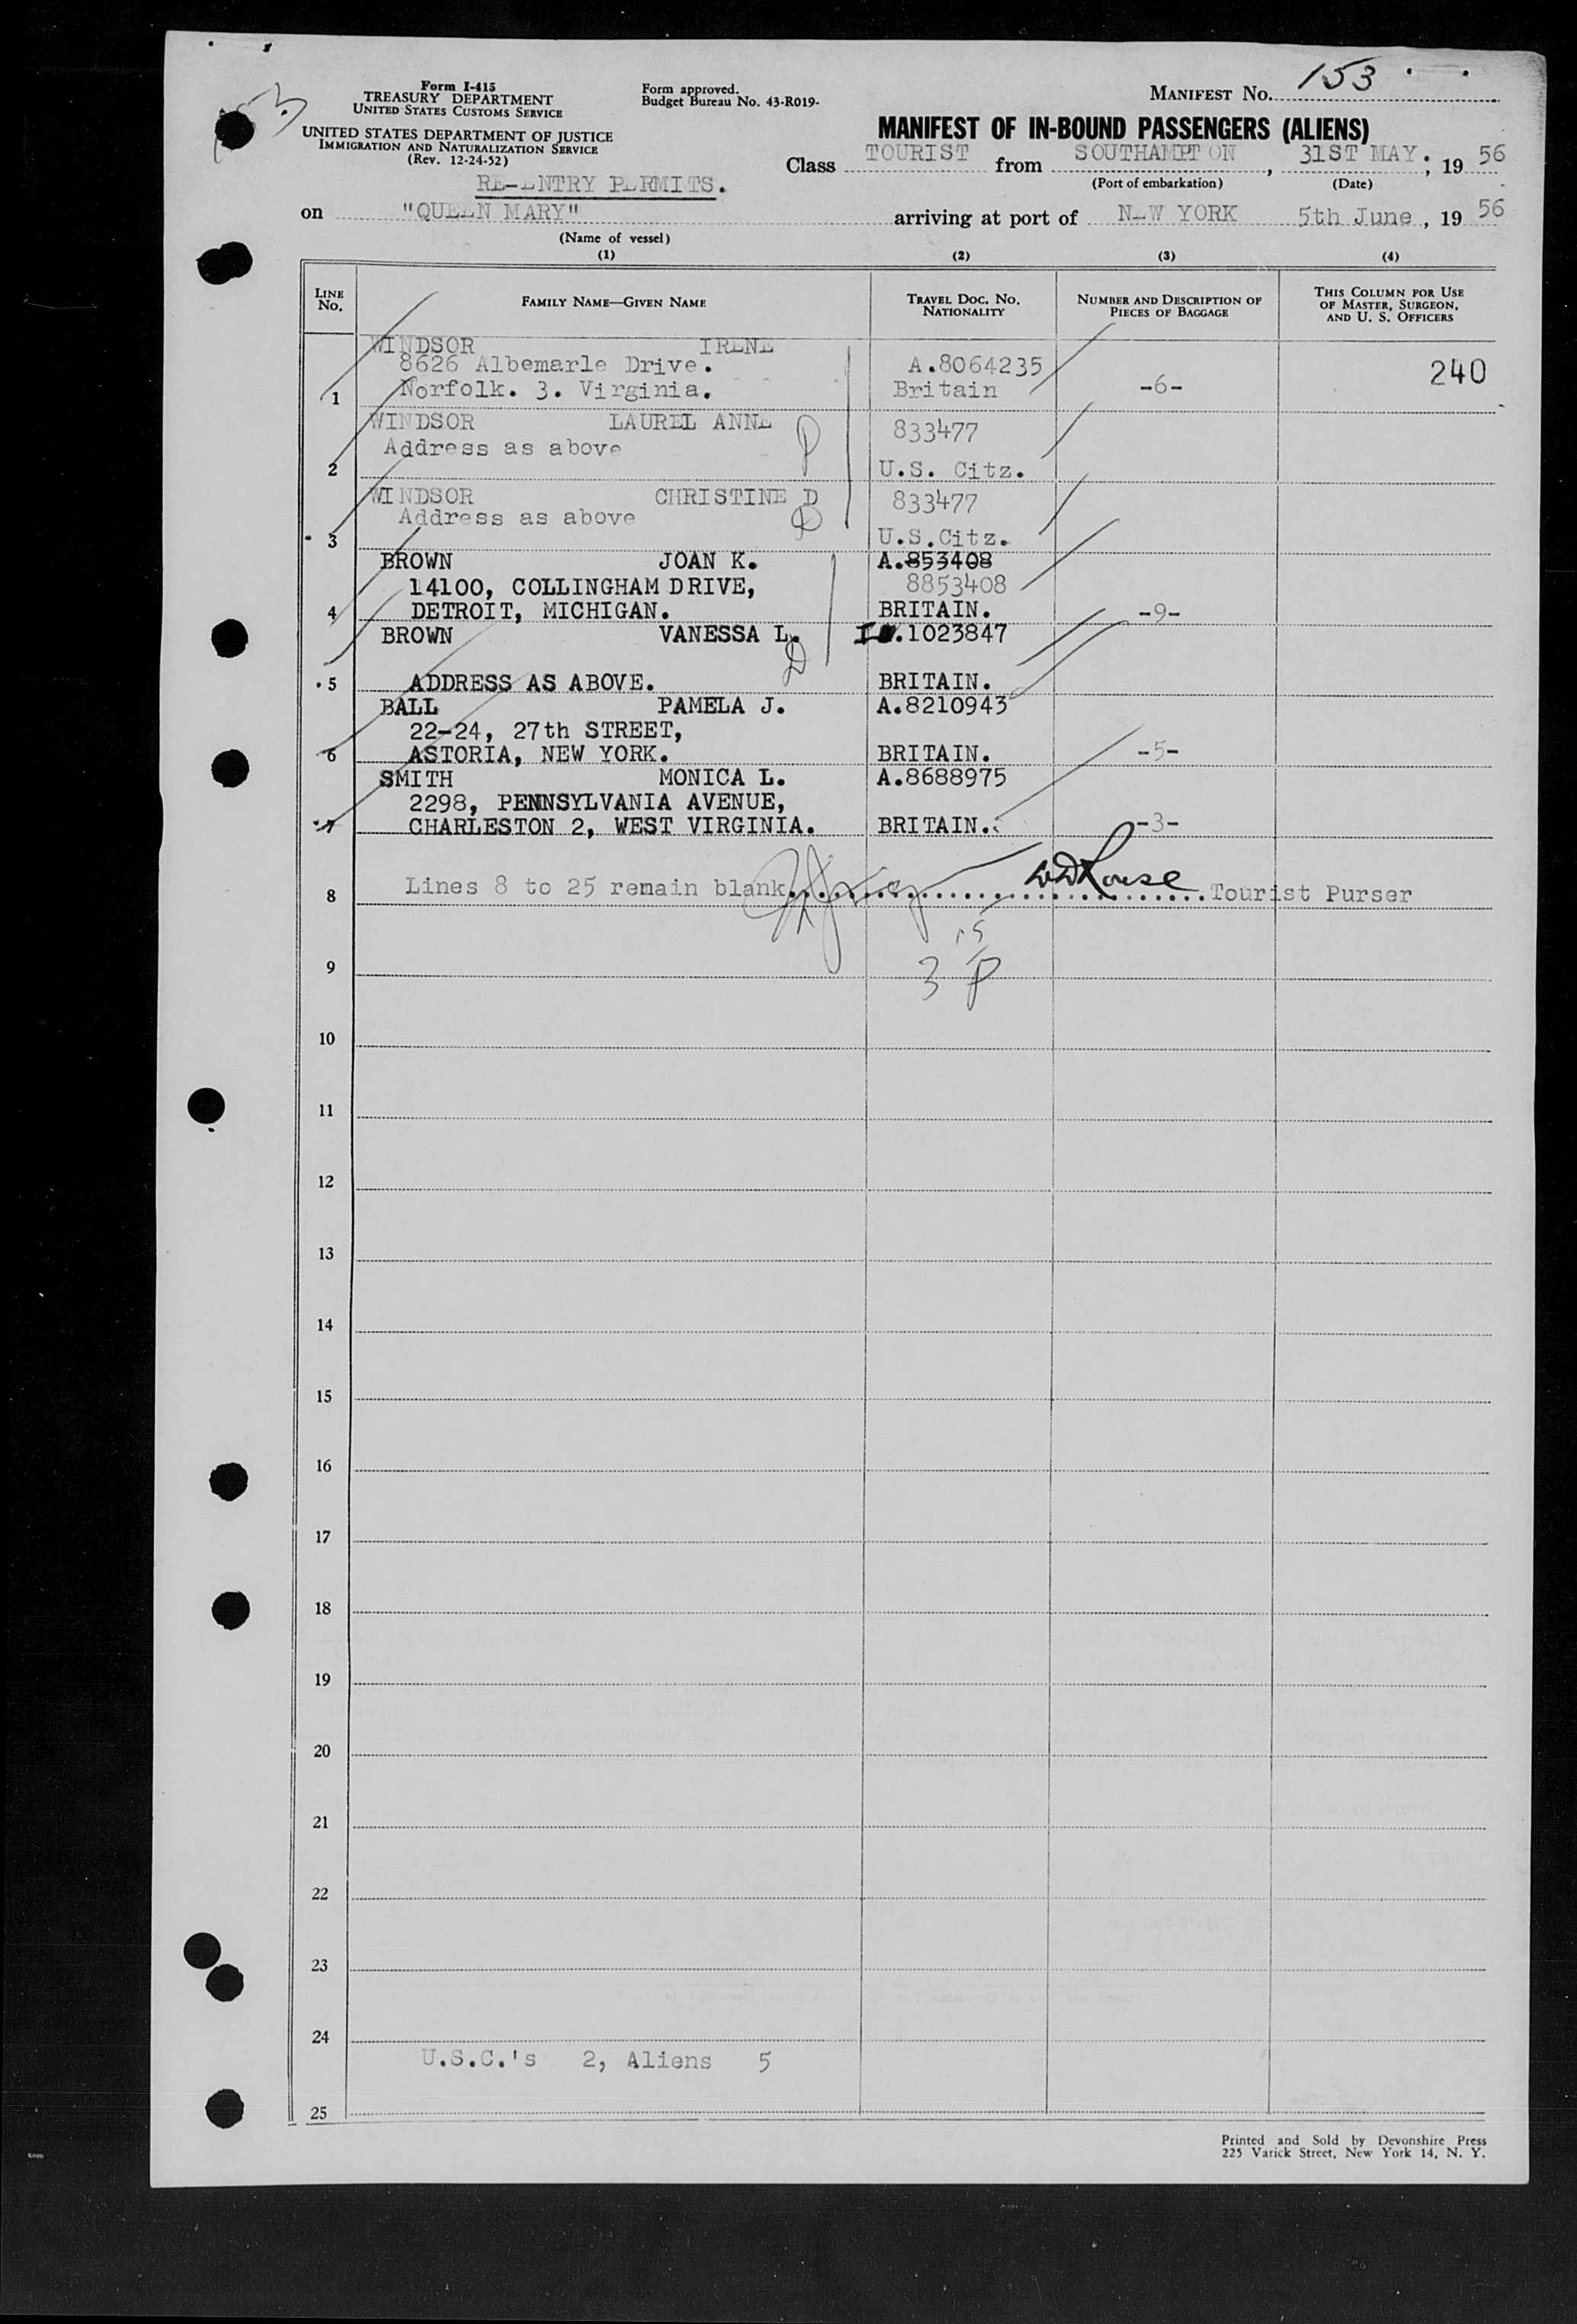 Form I-415
TREASURY DEPARTMENT
UNITED STATES CUSTOMS SERVICE
UNITED STATES DEPARTMENT OF JUSTICE
IMMIGRATION AND NATURALIZATION SERVICE
(Rev. 12-24-52)
Form approved.
Budget Bureau No. 43-R019-
MANIFEST No. 153
MANIFEST OF IN-BOUND PASSENGERS (ALIENS)
Class TOURIST from SOUTHAMPTON, 31ST MAY., 19 56
(Port of embarkation) (Date)
RE-ENTRY PERMITS.
on "QUEEN MARY" arriving at port of NEW YORK 5th June, 19 56
(Name of vessel)
(1) (2) (3) (4)
LINE No. FAMILY NAME—GIVEN NAME TRAVEL DOC. No. NATIONALITY NUMBER AND DESCRIPTION OF PIECES OF BAGGAGE THIS COLUMN FOR USE OF MASTER, SURGEON, AND U. S. OFFICERS
WINDSOR IRENE
8626 Albemarle Drive. A.8064235 240
1 Norfolk. 3. Virginia. Britain -6-
WINDSOR LAUREL ANNE 833477
Address as above
2 U.S. Citz.
WINDSOR CHRISTINE D 833477
Address as above
3 U.S.Citz.
BROWN JOAN K. A.853408
14100, COLLINGHAM DRIVE, 8853408
4 DETROIT, MICHIGAN. BRITAIN. -9-
BROWN VANESSA L. 1023847
5 ADDRESS AS ABOVE. BRITAIN.
BALL PAMELA J. A.8210943
22-24, 27th STREET,
6 ASTORIA, NEW YORK. BRITAIN. -5-
SMITH MONICA L. A.8688975
2298, PENNSYLVANIA AVENUE,
7 CHARLESTON 2, WEST VIRGINIA. BRITAIN. -3-
8 Lines 8 to 25 remain blank. Tourist Purser
15
9 3 P
10
11
12
13
14
15
16
17
18
19
20
21
22
23
24
U.S.C.'s 2, Aliens 5
25
Printed and Sold by Devonshire Press
225 Varick Street, New York 14, N. Y.